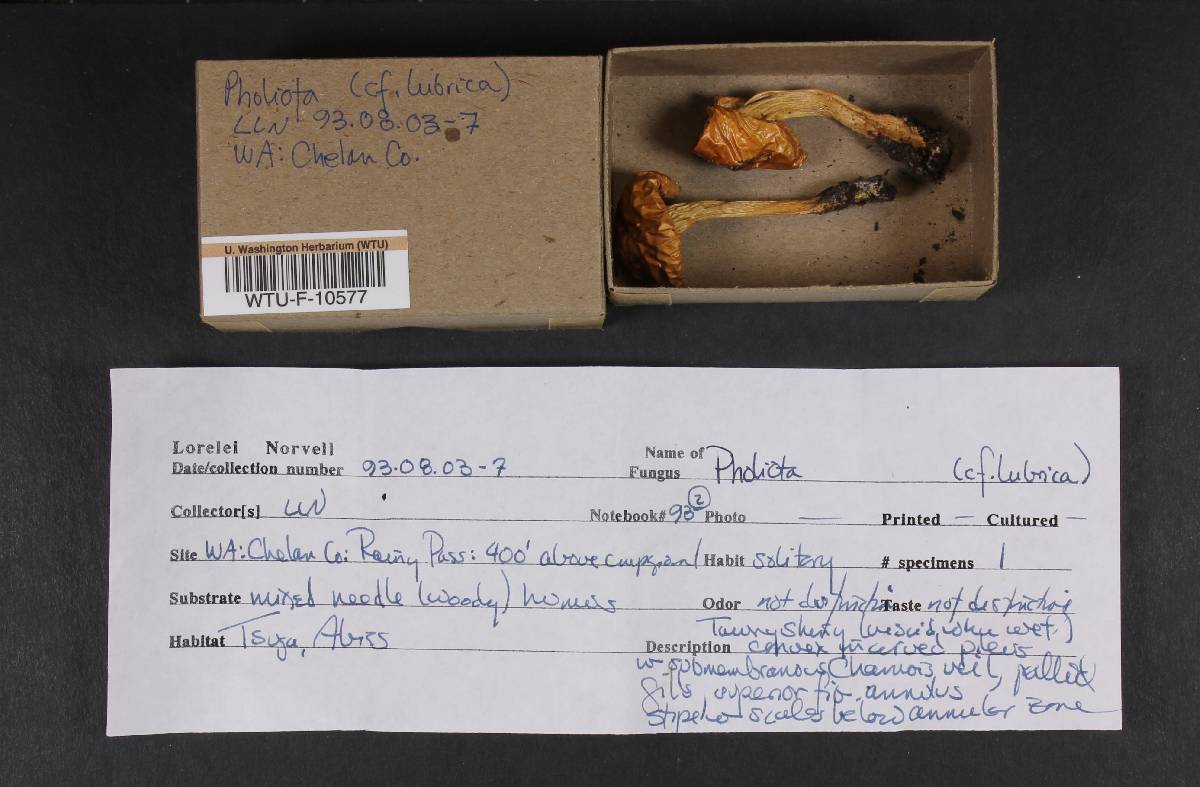 Pholiota (cf. lubrica)
LLN 93.08.03-7
WA: Chelan Co.
U. Washington Herbarium (WTU)
WTU-F-10577
Lorelei Norvell
Date/collection number 93.08.03-7
Name of Fungus Pholiota (cf. lubrica)
Collector[s] LLN
Notebook# 93 (2) Photo — Printed — Cultured —
Site WA: Chelan Co: Rainy Pass: 400' above Habit solitary # specimens 1
Substrate mixed needle (woody) humus
Odor not distinctive Taste not distinctive
Habitat Tsuga, Abies
Description Tawny shiny (viscid when wet)
convex incurved pileus
w- submembranous Chamois veil, pallid
gills superior fib. annulus
stipe scales below annular zone